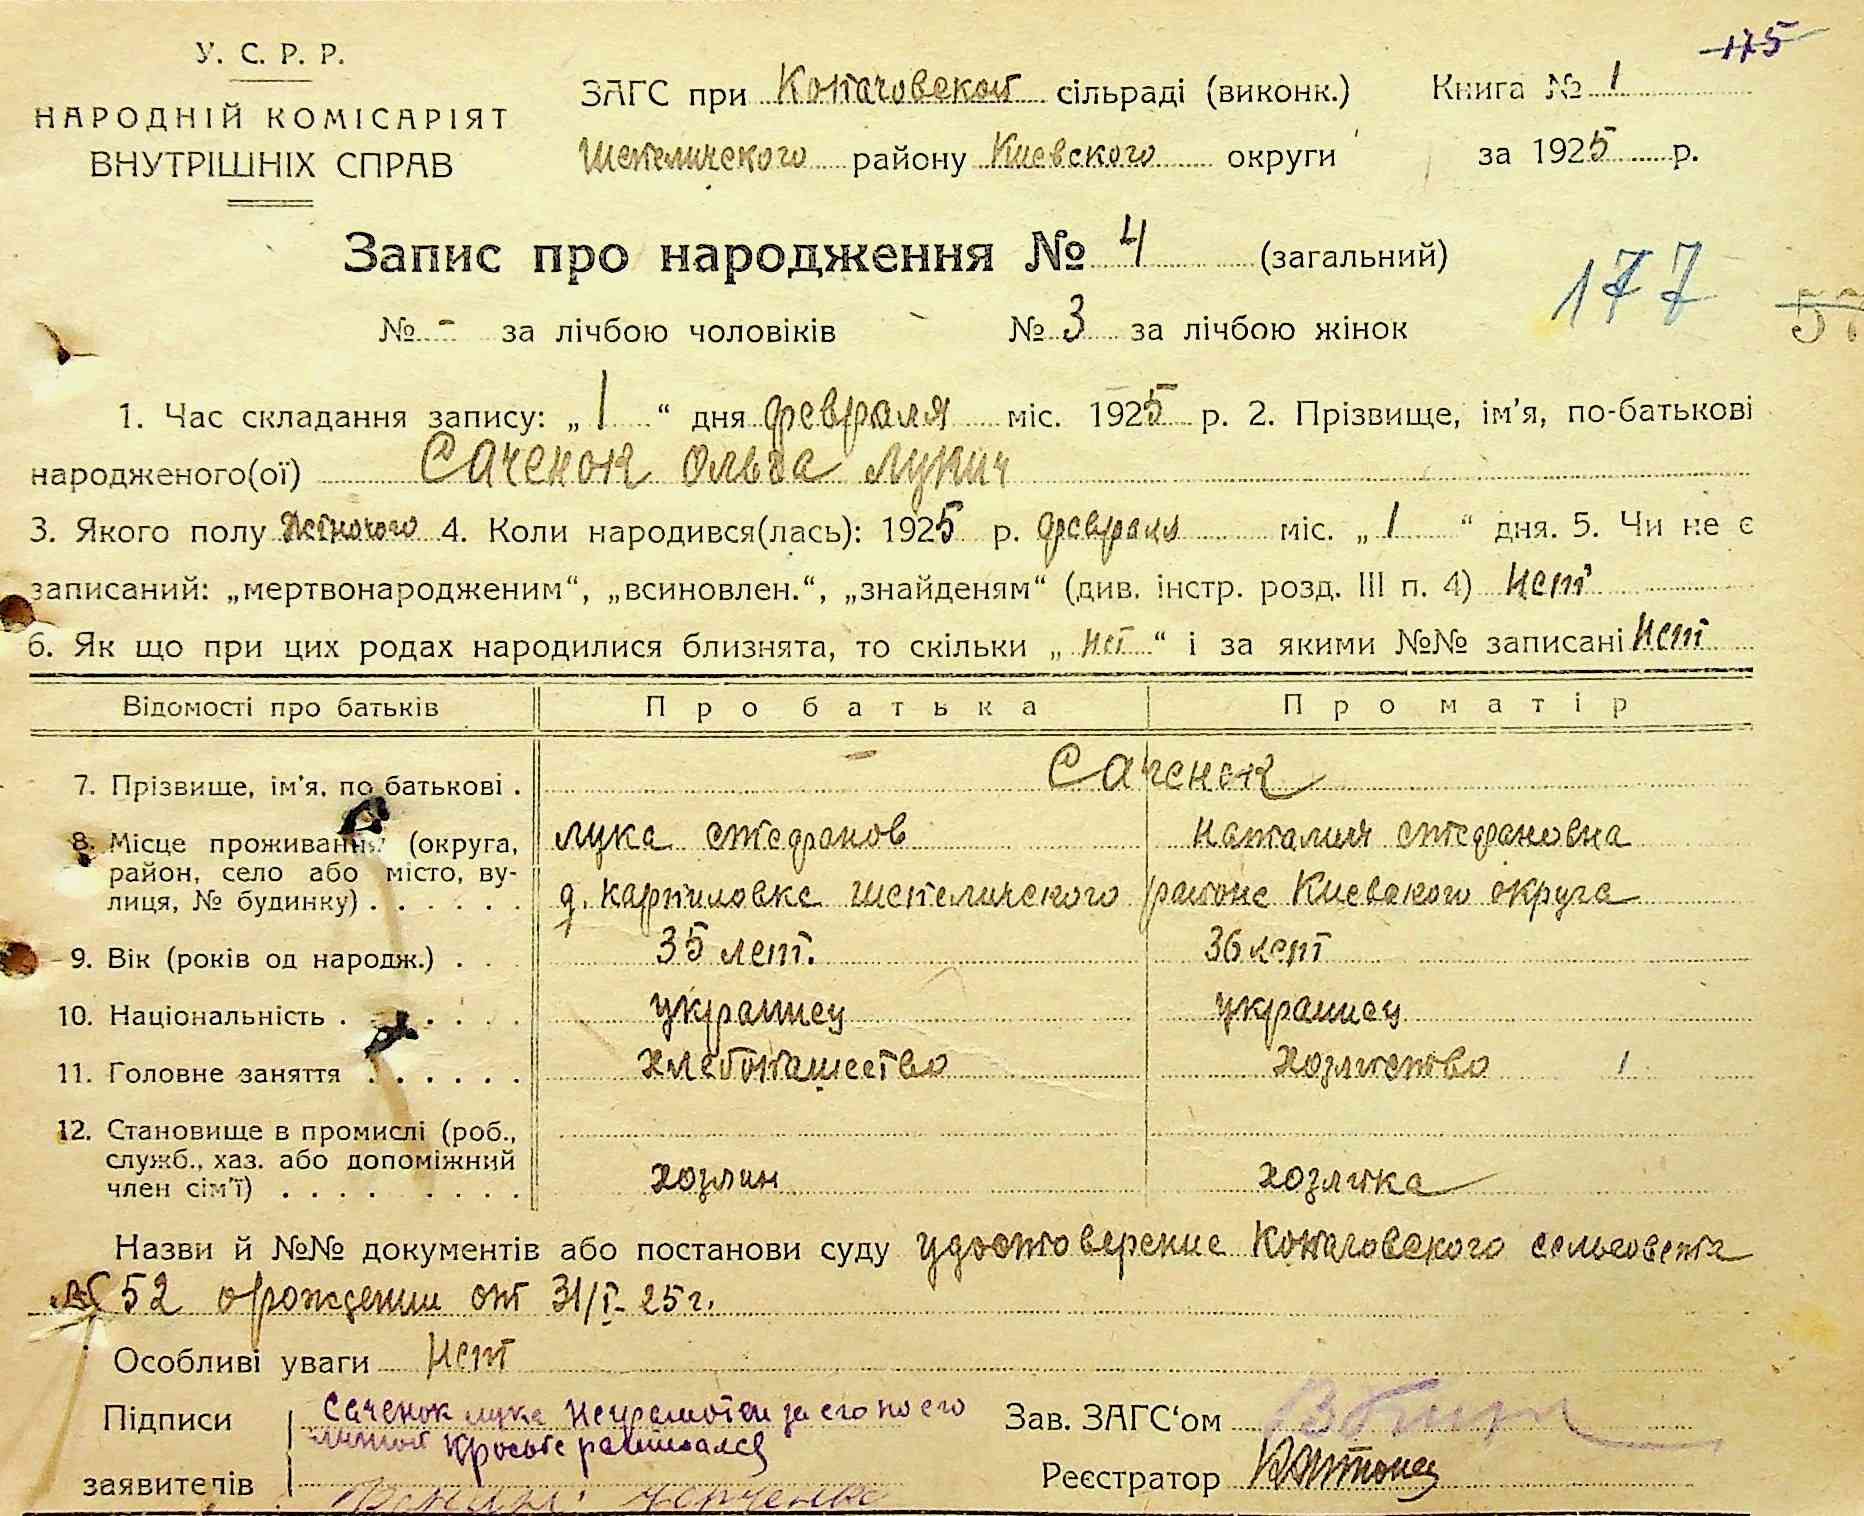 175
У. С. Р. Р.
НАРОДНІЙ КОМІСАРІЯТ
ВНУТРІШНІХ СПРАВ
ЗАГС при Копачовской сільраді (виконк.) Книга № 1
Шепеличского району Киевского округи за 1925 р.
Запис про народження № 4 (загальний)
177
№ - за лічбою чоловіків № 3 за лічбою жінок
1. Час складання запису: „1“ дня февраля міс. 1925 р. 2. Прізвище, ім'я, по-батькові
народженого(ої) Саченок Ольга Лукич
3. Якого полу 4. Коли народився(лась): 1925 р. февраля міс. „1“ дня. 5. Чи не є
записаний: „мертвонародженим“, „всиновлен.“, „знайденям“ (див. інстр. розд. III п. 4) нет
6. Як що при цих родах народилися близнята, то скільки „нет“ і за якими №№ записані нет
Відомості про батьків Про батька Про матір
7. Прізвище, ім'я, по батькові . Саченок
8. Місце проживання (округа, район, село або місто, вулиця, № будинку) . . . . . .
лука стефанов наталия стефановна
д. карпиловка шепеличского районе Киевского округа
9. Вік (років од народж.) . . 35 лет. 36 лет
10. Національність . . . . . . украинец украинец
11. Головне заняття . . . . . . хлебопашество хозяйство
12. Становище в промислі (роб.,
служб., хаз. або допоміжний
член сім'ї) . . . . . . . . хозяин хозяйка
Назви й №№ документів або постанови суду удостоверение Копачовского сельсовета
№ 52 о рождении от 31/I-25 г.
Особливі уваги нет
Підписи Саченок лука неграмотен за его по его
личной просьбе
Зав. ЗАГС'ом
заявителів
Реєстратор